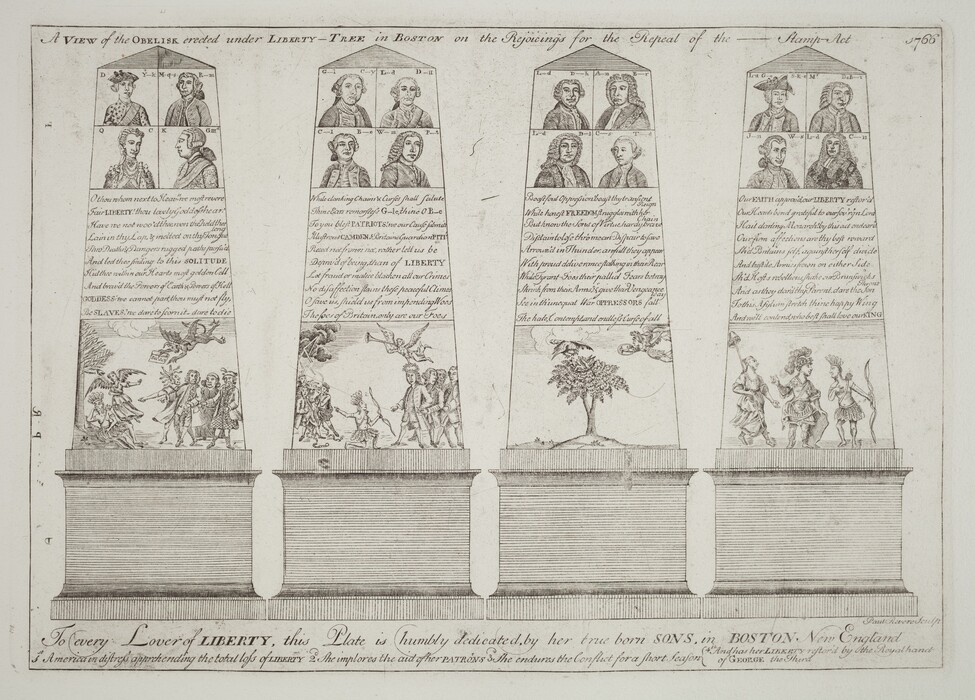 A VIEW of the OBELISK erected under LIBERTY-TREE in BOSTON on the Rejoicings for the Repeal of the —— Stamp-Act 1766
D Y-k M-q-s R-m
Q C K Geoe
G-l C-y L-d D-tt
C-l B-e W-m P-t
L-d D-h A-n B-d
L-d
L-d
O thou whom next to Heav'n we most revere
Fair LIBERTY thou lovely Goddess hear
Have we not woo'd thee won thee held thee long
Lain in thy Lap & melted on thy Tongue
Thro Deaths & Dangers rugged paths pursu'd
And led thee smiling to this SOLITUDE
Hid thee within our Hearts most golden Cell
And brav'd the Powers of Earth & Powers of Hell
GODDESS! we cannot part, thou must not fly,
Be SLAVES! we dare to scorn it, dare to die
While clanking Chains & Curses shall salute
Thine Ears remorseless G-le, thine O B-e
To you blest PATRIOTS, we our Cause submit
Illustrous CAMDEN, & Britain's Guardian PITT
Recede not, frown not, rather let us be
Depriv'd of being than of LIBERTY
Let fraud or malice blacken all our Crimes
No disaffection stains these peaceful Climes
O save us, shield us from impending Woes
The foes of Britain, only are our Foes
Boast foul Oppression, boast thy transient Reign
While honest FREEDOM struggles with her Chain
But know the Sons of Virtue, hardy, brave
Disdain to lose thro mean Despair to save
Arrouz'd in Thunder, awfull they appear
With proud deliverance stalking in their Rear
While Tyrant-Foes their pallid Fears betray
Shrink from their Arms & give their Vengeance Way
See in th'unequal War OPPRESSORS fall
The hate, Contempt, and endless Curse of all
Our FAITH approv'd, our LIBERTY restor'd
Our Hearts bend grateful to our sov'rign Lord
Hail darling Monarch! by this act endear'd
Our firm affections are thy best reward
Sh'd Britains self, against herself divide
And hostile Armies frown on either Side
Sh'd Hosts rebellious, shake our Brunswick's Throne
And as they dar'd thy Parent, dare the Son
To this Asylum stretch thine happy Wing
And we'll contend, who best shall love our KING
Paul Revere Sculp
To every Lover of LIBERTY, this Plate is humbly dedicated, by her true born SONS, in BOSTON New England
1. America in distress apprehending the total loss of LIBERTY 2. She implores the aid of her PATRONS 3. She endures the Conflict for a short Season 4 And has her LIBERTY restor'd by the Royal hand of GEORGE the Third